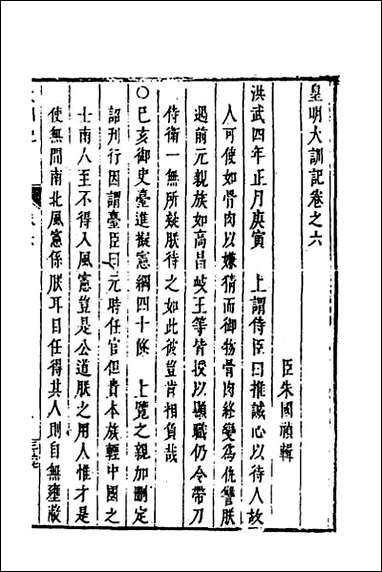 皇明大訓記卷之六
臣朱國禎輯
洪武四年正月庚寅　上謂侍臣曰推誠心以待人故
人可使如骨肉以嫌猜而御物骨肉終變為仇讐朕
過前元親族如高昌岐王等皆授以顯職仍令帶刀
侍衛一無所疑朕待之如此彼豈肯相負哉
○己亥御史臺進擬憲綱四十條　上覽之親加刪定
詔刊行因謂臺臣曰元時任官但貴本族輕中國之
士南人至不得入風憲豈是公道朕之用人惟才是
使無間南北風憲係朕耳目任得其人則自無壅蔽